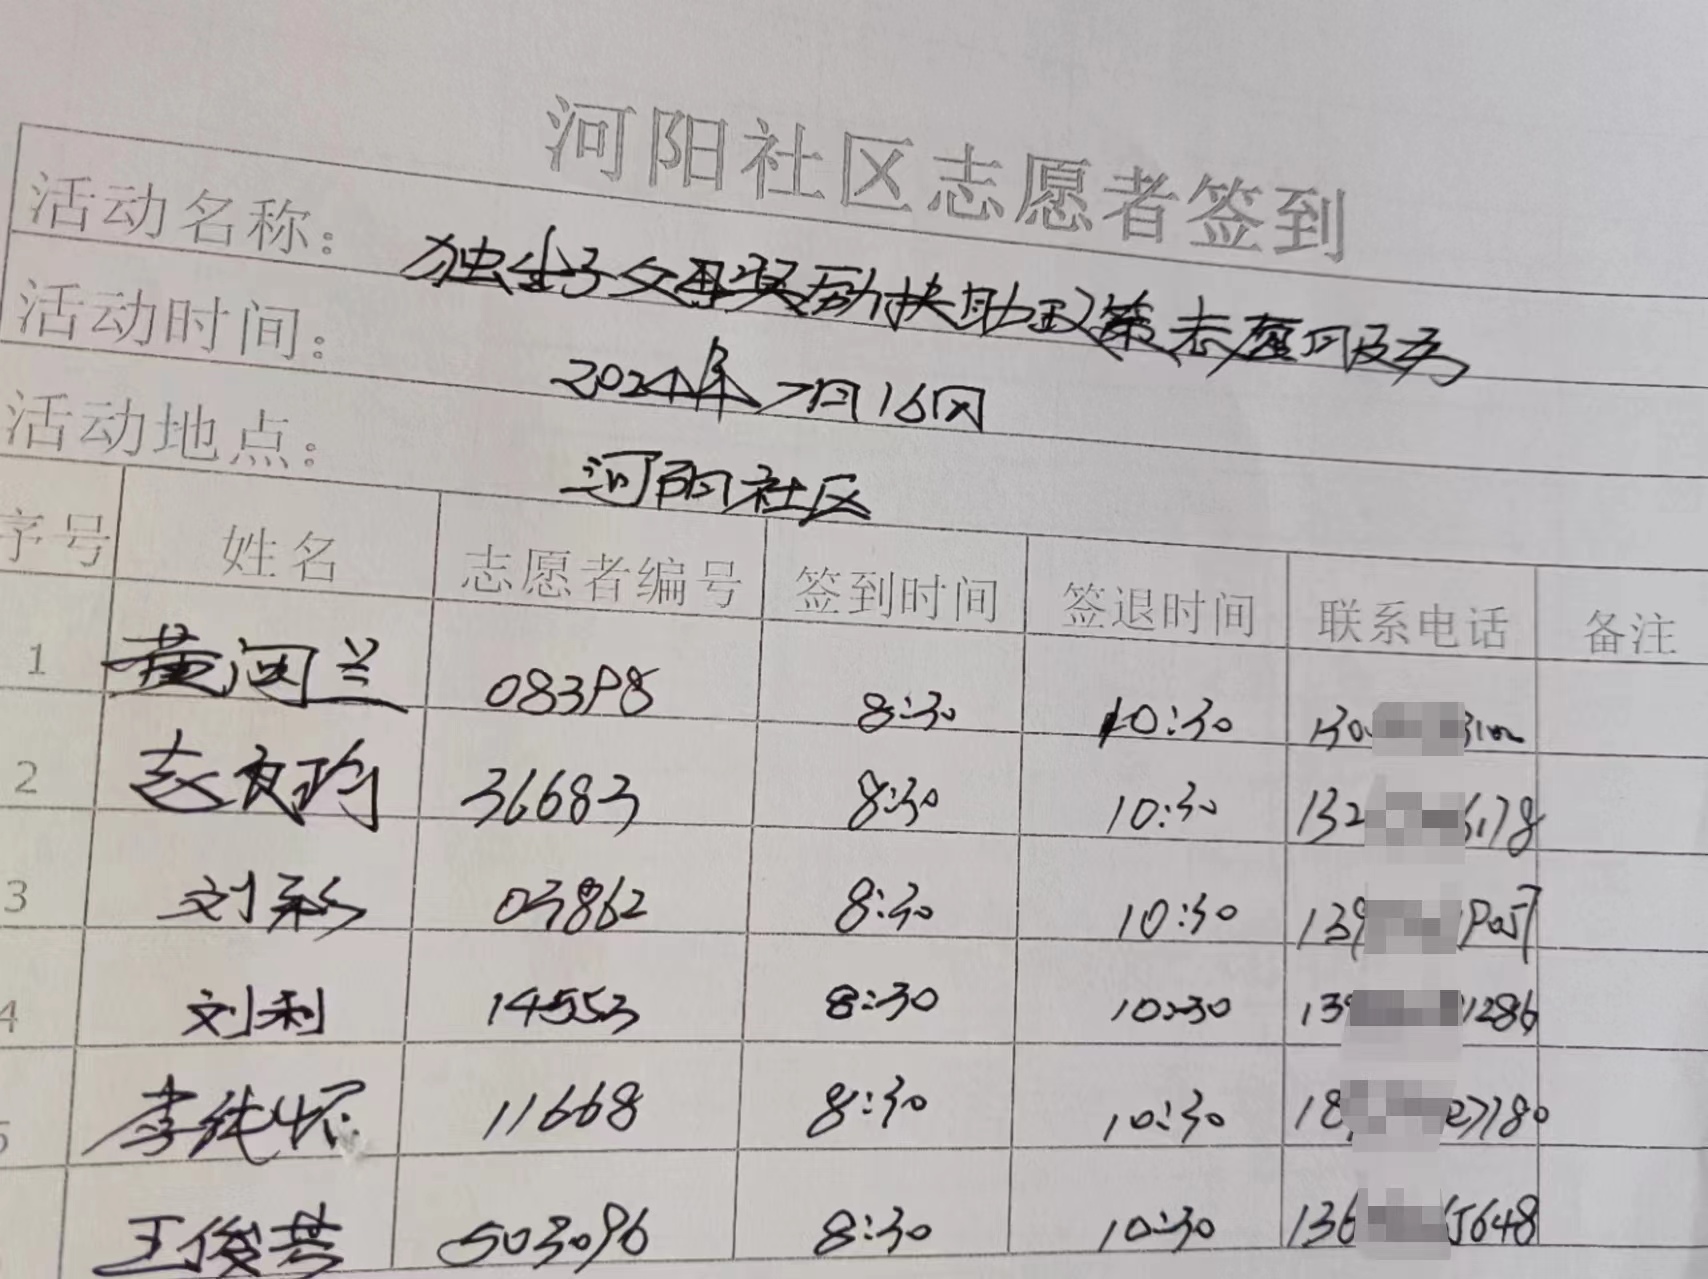 河阳社区志愿者签到
活动名称： 独生子父母奖励扶助政策志愿服务
活动时间： 2024年7月16日
活动地点： 河阳社区
序号 姓名 志愿者编号 签到时间 签退时间 联系电话 备注
1 黄闵兰 08398 8:30 10:30 130
2 36683 8:30 10:30 132 6178
3 刘彩 03862 8:30 10:30 139 9057
4 刘利 14553 8:30 10:30 139 1286
5 李纯怀 11668 8:30 10:30 18 27180
王俊芸 503096 8:30 10:30 136 5648